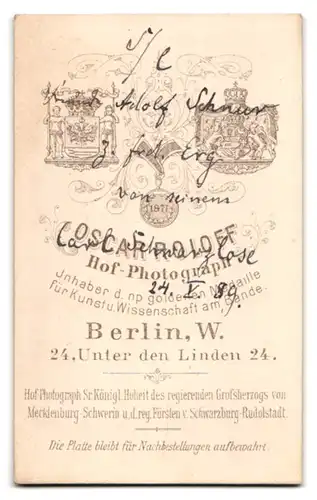 S/l
Adolf Schnur
z. frdl. Erg.
von seinem
1871
OSCAR ROLOFF
Carl Schwarzlose
Hof-Photograph
24. V. 89.
Inhaber d. np goldenen Medaille
für Kunst u. Wissenschaft am Bande.
Berlin, W.
24, Unter den Linden 24.
Hof Photograph Sr. Königl. Hoheit des regierenden Großherzogs von
Mecklenburg-Schwerin u. d. reg. Fürsten v. Schwarzburg-Rudolstadt.
Die Platte bleibt für Nachbestellungen aufbewahrt.